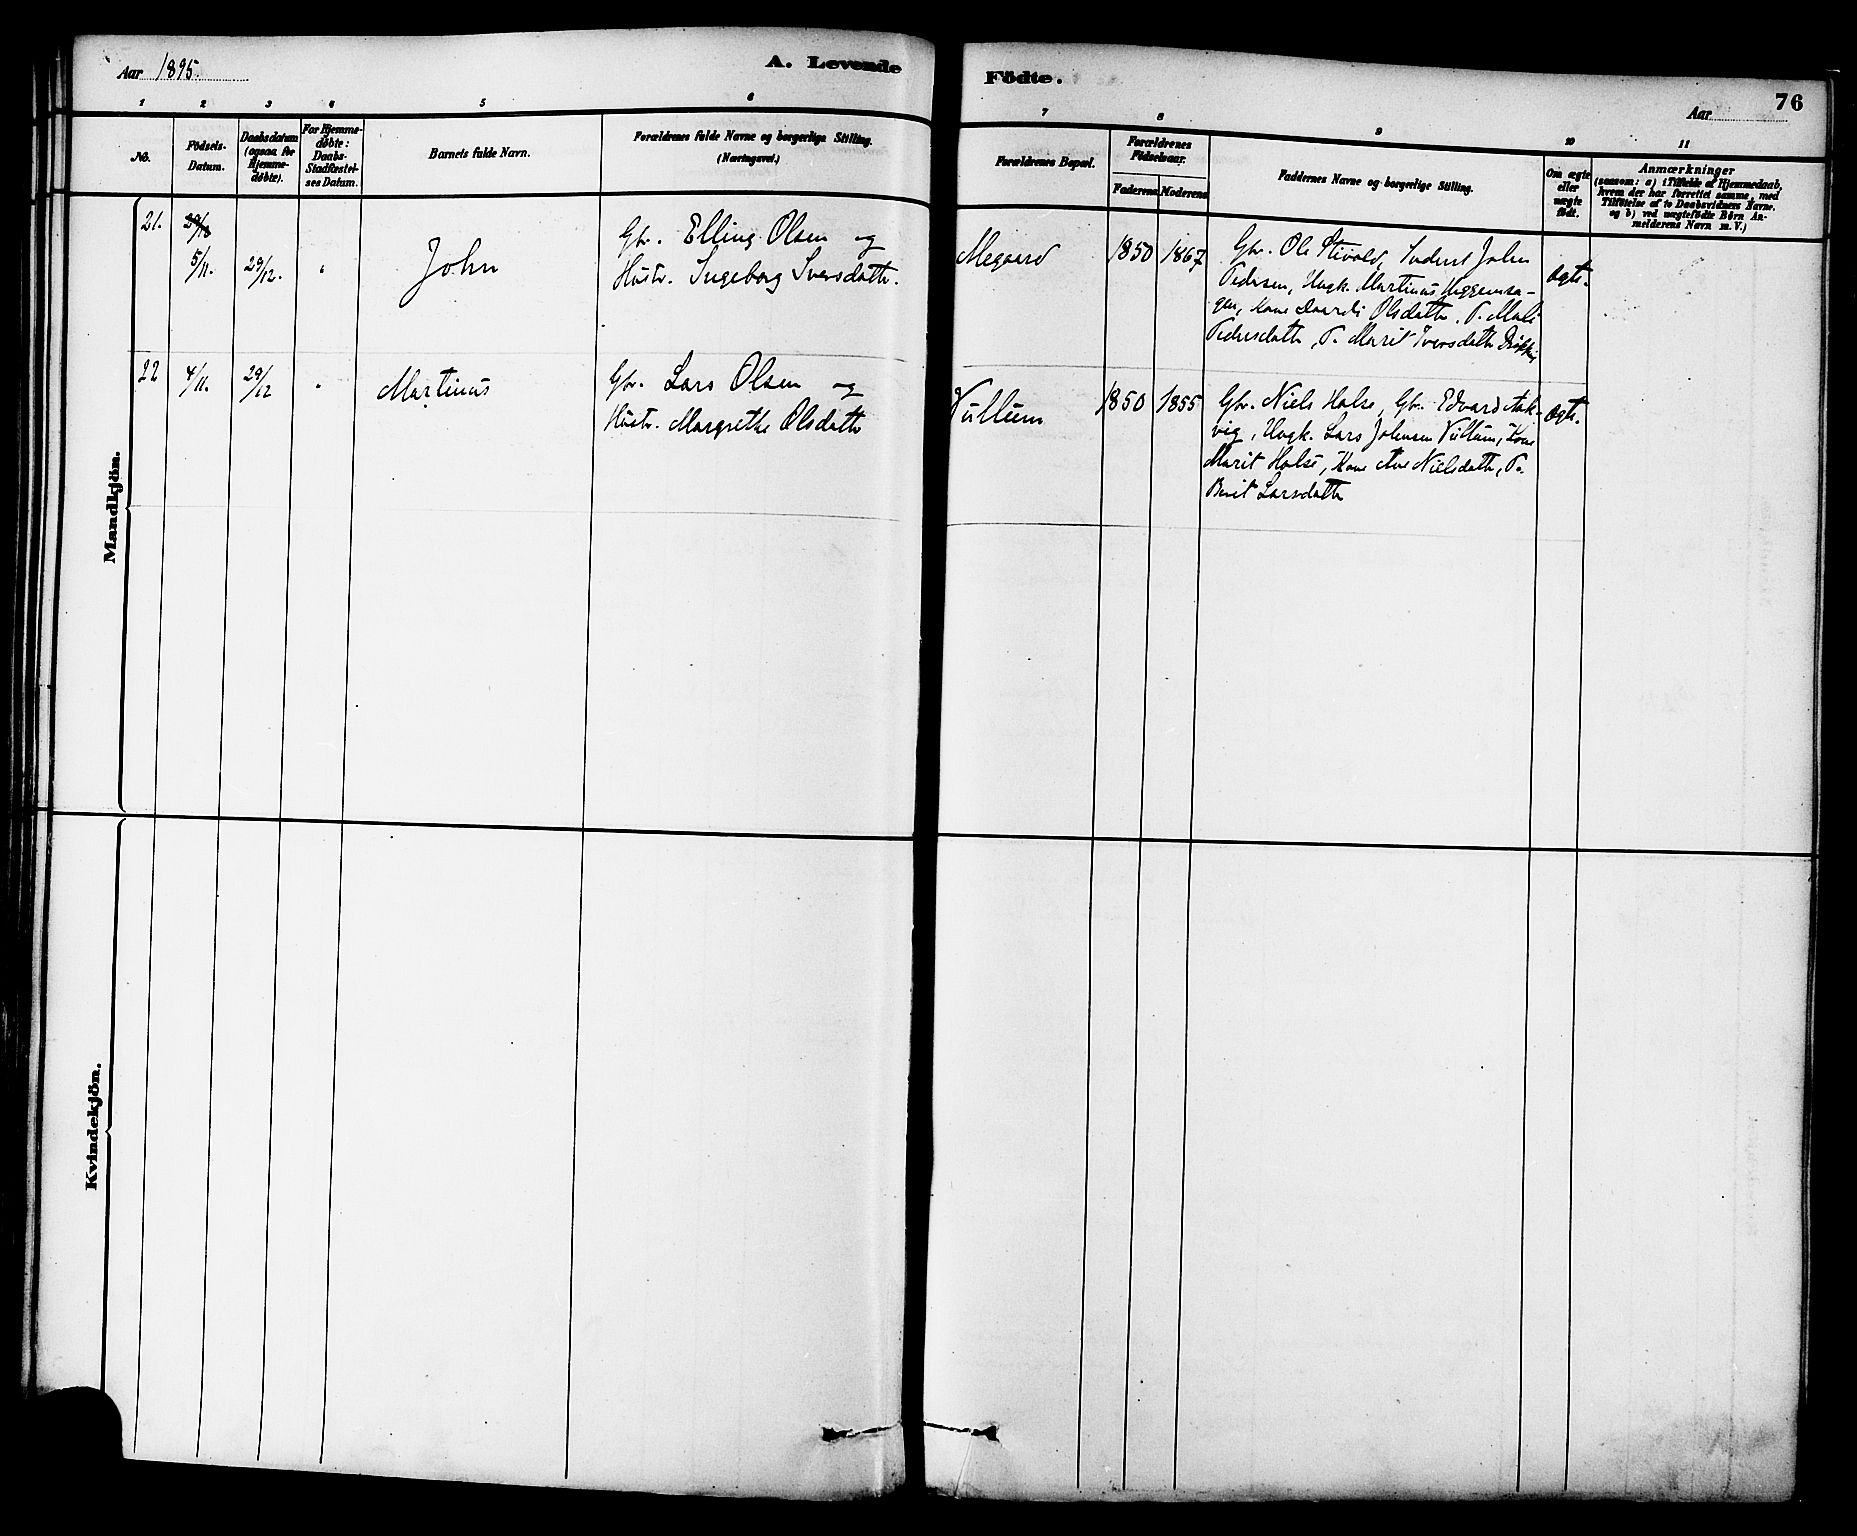 Aar 1895.
A. Levende
Födte.
Aar
76
1 2 3 4 5 6
7 8 9 10 11
No.
Födsels-
Datum.
Daabsdatum
(ogsaa for
Hjemme-
døbte).
For Hjemme-
døbte:
Daabs-
Stadfæstel-
ses Datum.
Barnets fulde Navn.
Forældrenes fulde Navne og borgerlige Stilling.
(Næringsvei.)
Forældrenes Bopæl.
Forældrenes
Födselsaar.
Faderens. Moderens
Faddernes Navne og borgerlige Stilling.
Om ægte
eller
uægte
födt.
Anmærkninger
(saasom: a) i Tilfælde af Hjemmedaab,
hvem der har forrettet samme, med
Tilföielse af to Daabsvidners Navne.
og b) ved uægtefödte Börn An-
melderens Navn m. V.)
Mandkjön.
21.
5/11.
29/12.
"
John
Gbr. Elling Olsen og
Hustr. Ingeborg Iversdattr.
Megaard
1850 1867
Gbr. Ole Stivold, Inderst John
Pedersen, Ungk. Martinus Heggemsa-
gen, Kone Olsdattr. P. Mali
Pedersdattr, P. Marit Iversdattr
Ægte.
22
4/11.
29/12
"
Martinus
Gbr. Lars Olsen og
Hustr. Margrethe Olsdattr
Vullum
1850 1855
Gbr. Niels Halse, Gbr. Edvard Aak-
vig, Ungk. Lars Johnsen Vullum, Kone
Marit Halse, Kone Ane Nielsdattr, P.
Berit Larsdattr
Ægte.
Kvindekjön.